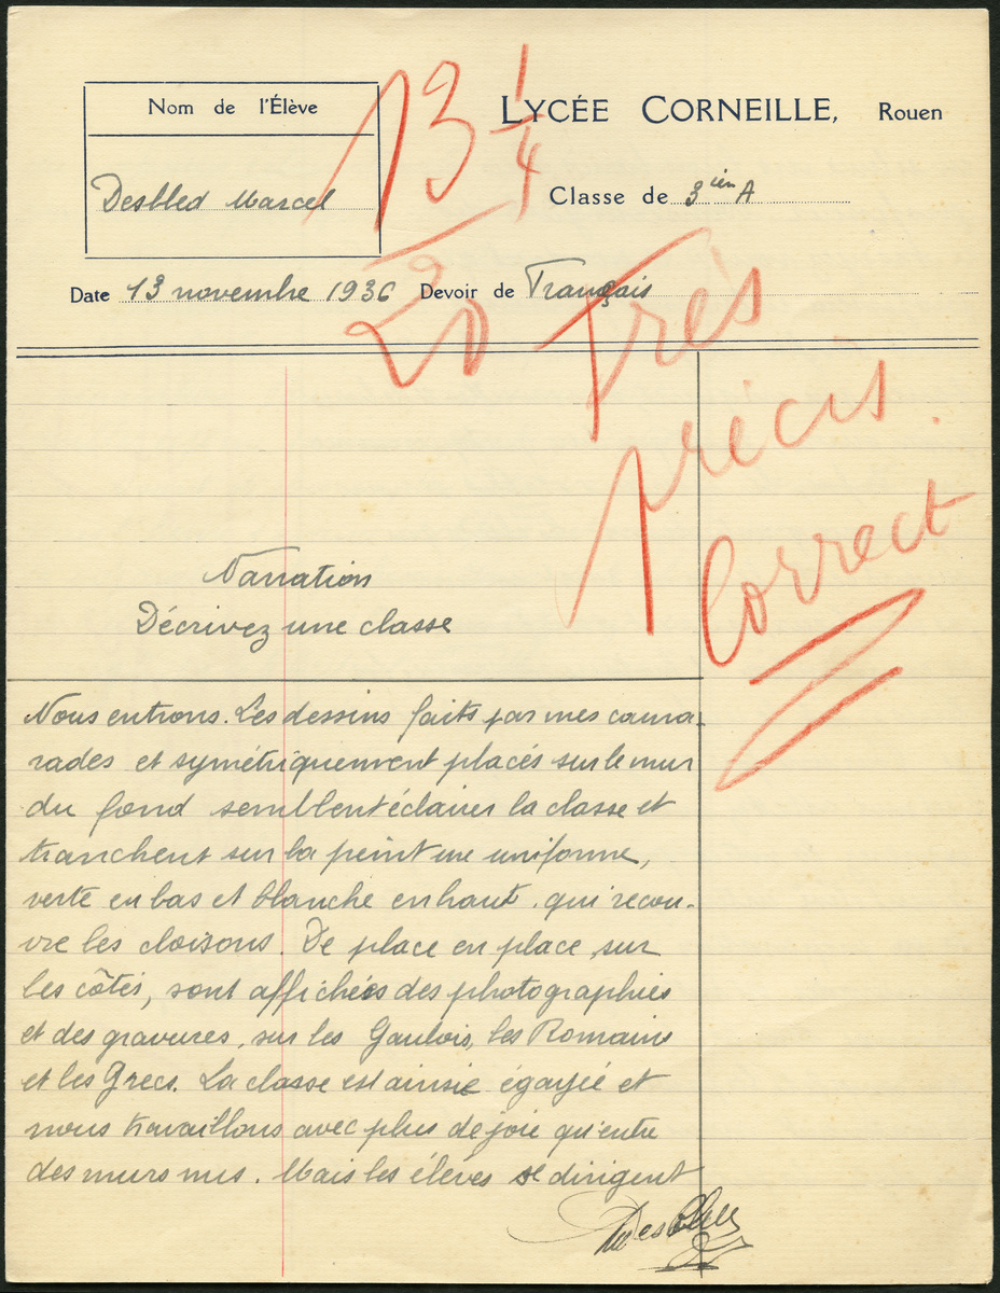 Nom de l'Élève
LYCÉE CORNEILLE, Rouen
Desbled Marcel
13 1/4
20
Classe de 3ième A
Date 13 novembre 1936 Devoir de Français
Très
précis.
Correct
Narration
Décrivez une classe
Nous entrons. Les dessins faits par mes cama-
rades et symétriquement placés sur le mur
du fond semblent éclairer la classe et
tranchent sur la peinture uniforme,
verte en bas et blanche en haut, qui recou-
vre les cloisons. De place en place, sur
les côtés, sont affichées des photographies
et des gravures, sur les Gaulois, les Romains
et les Grecs. La classe est ainsie égayée et
nous travaillons avec plus de joie qu'entre
des murs nus. Mais les élèves se dirigent